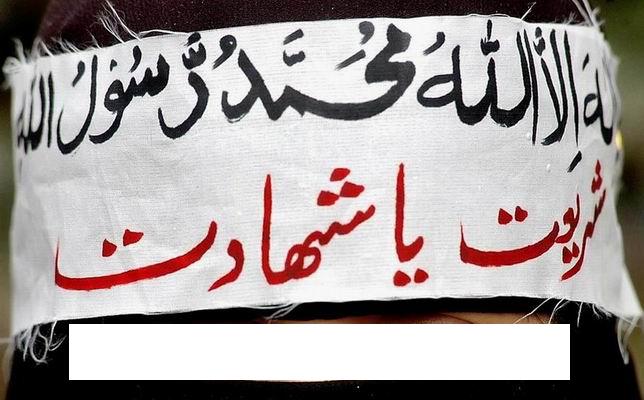 لہَ اِلاَّ اللّٰہُ مُحَمَّدُ رَّسُوْلُ اللہ
شریعت یا شہادت